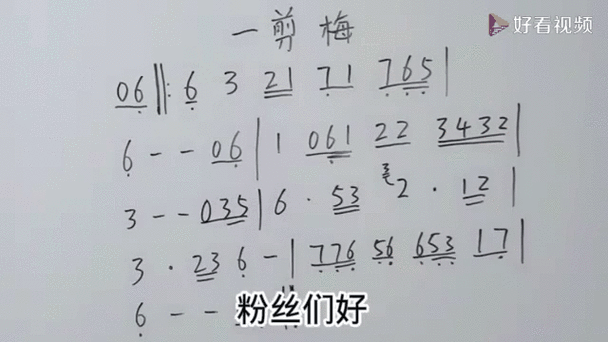 好看视频
一剪梅
06‖: 6 3 21 71 765|
6 - - 06|1 061 22 3432|
3 - - 035|6 · 53 2 · 12|
3 · 23 6 -|776 56 653 17|
6 - -
粉丝们好